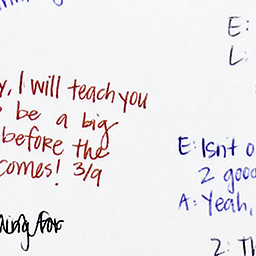 E:
L:
y, I will teach you
be a big
before the
comes! 3/9
E: Isn't o
2 good
A: Yeah,
ning for
2: Th